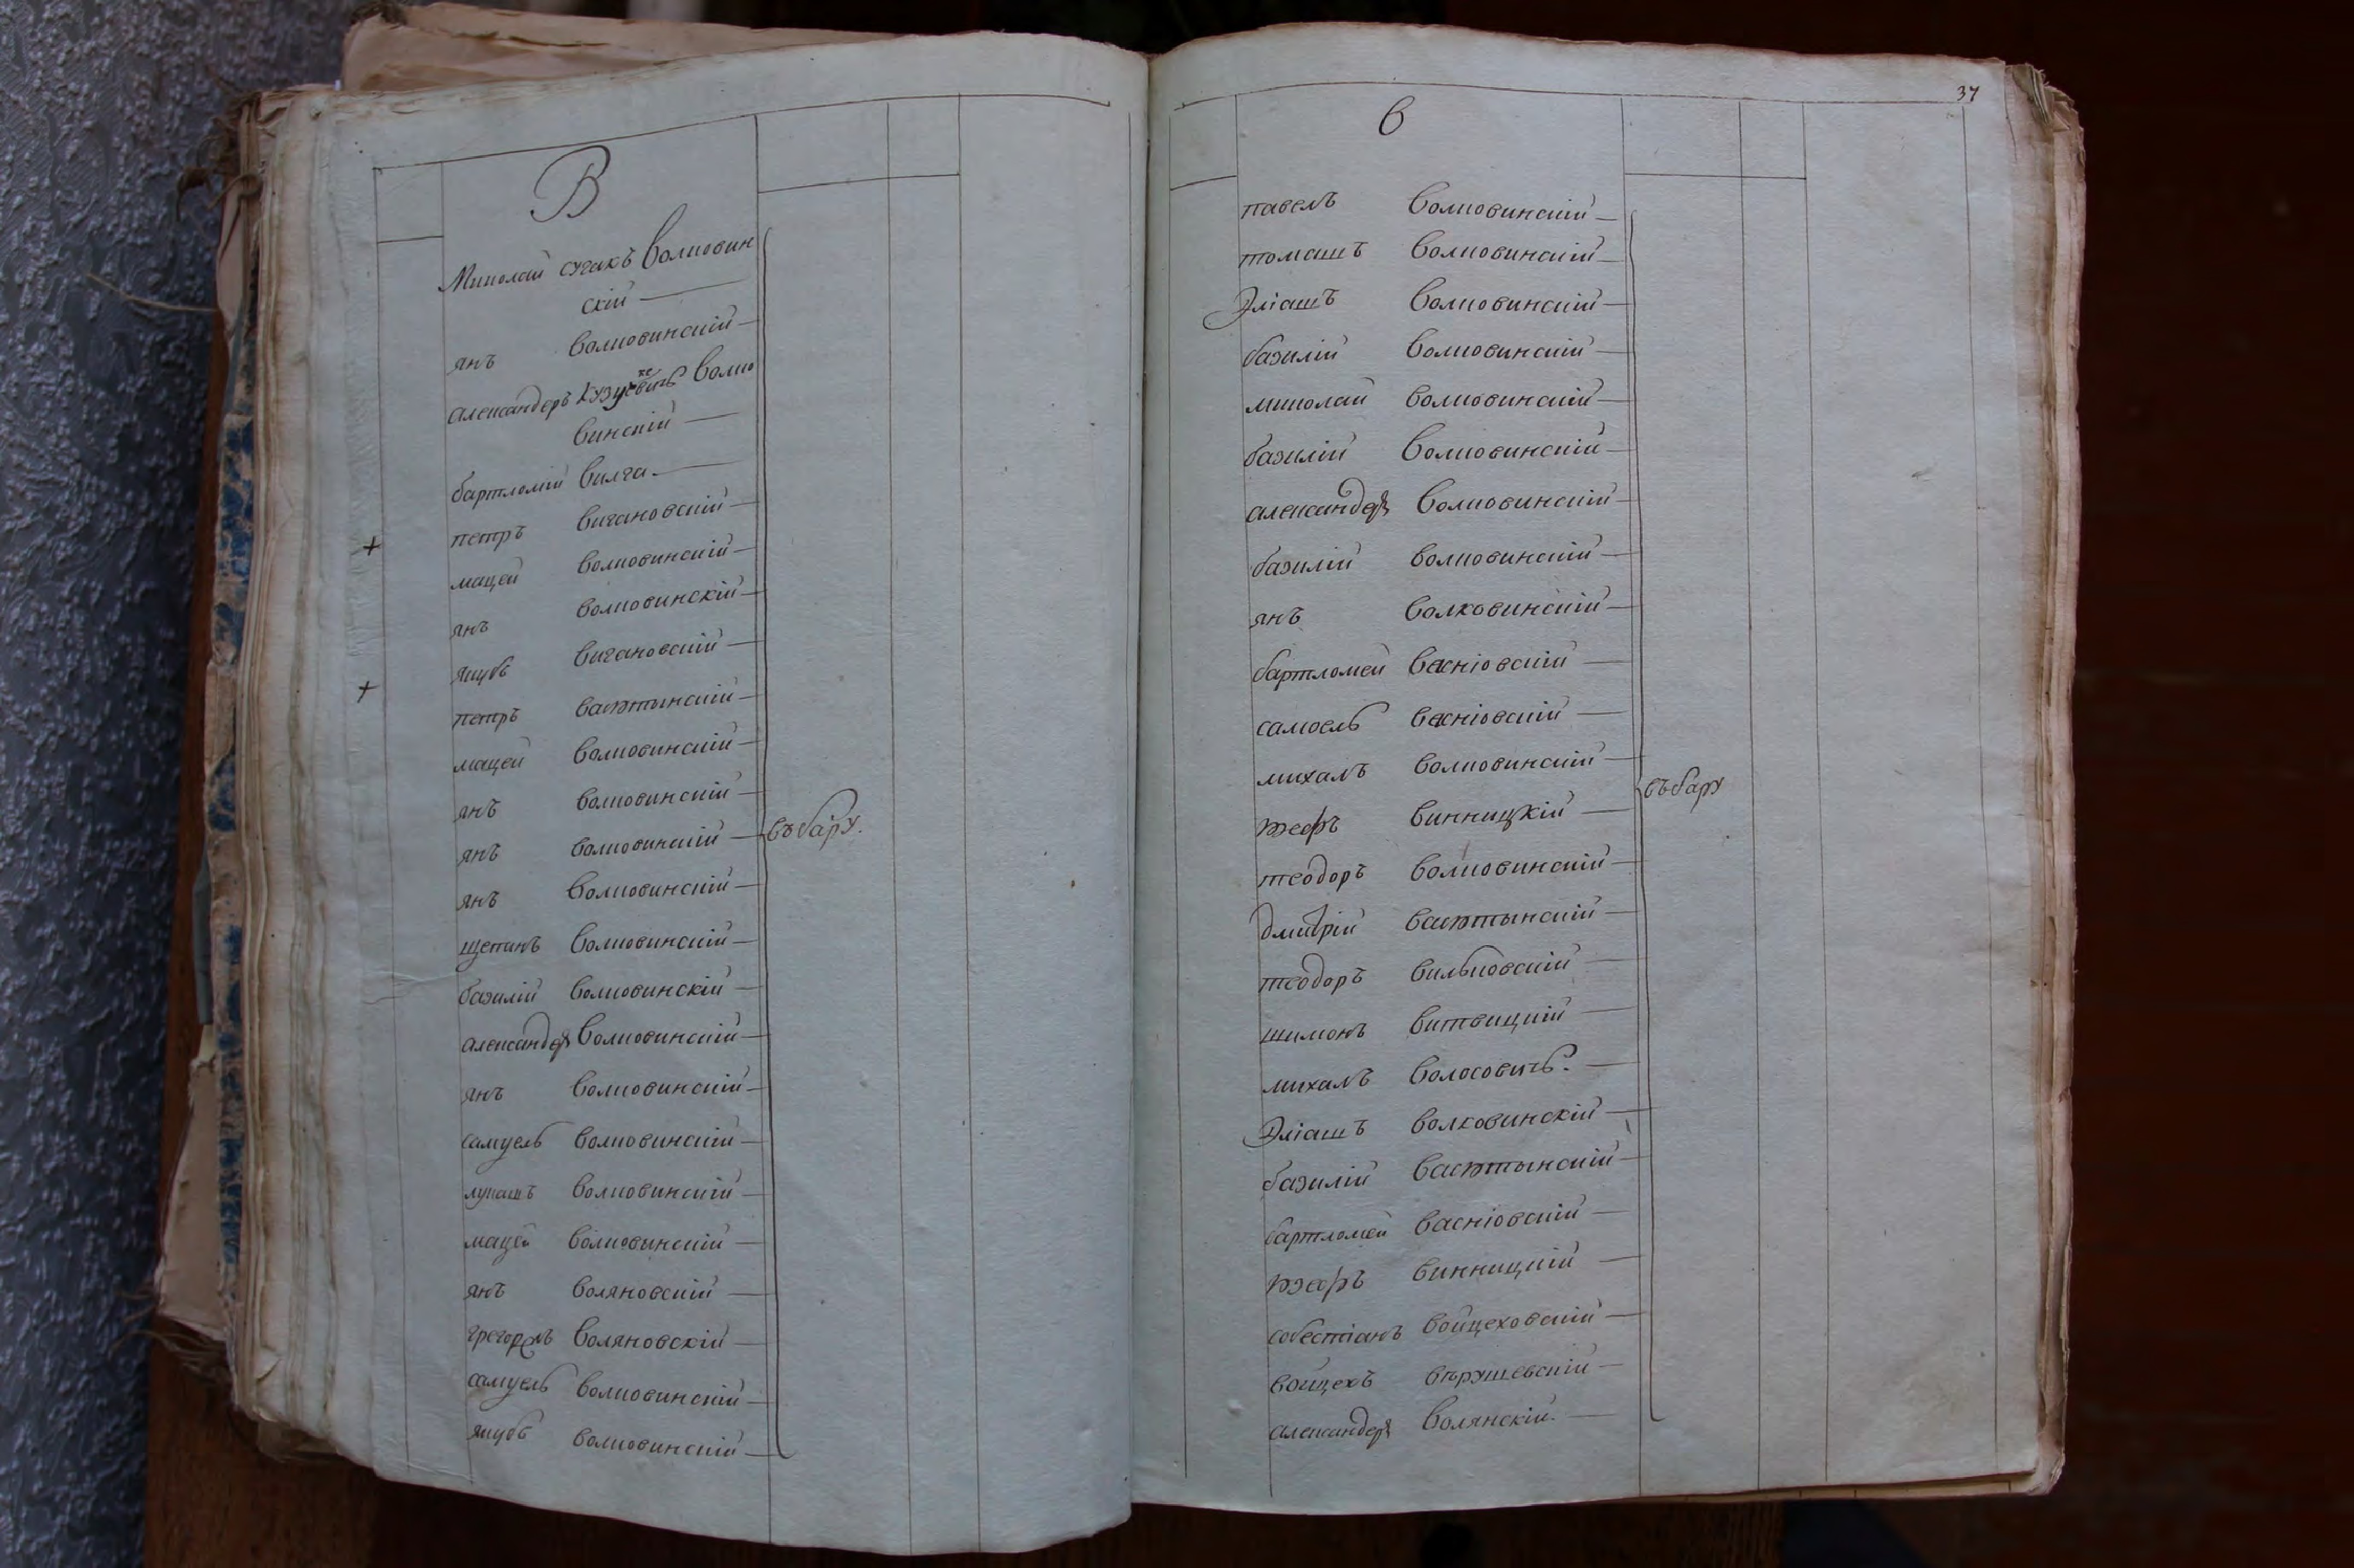 В
Миколай сучакъ Волковин
скій
янъ Волковинскій
александеръ Кузуевичъ Волко
же
винскій
бартломій Вилга
петръ Вигановскій
мацей Волковинскій
янъ Волковинскій
якубъ Вигановскій
петръ
мацей Волковинскій
янъ Волковинскій
янъ Волковинскій
въ бару.
янъ Волковинскій
щепанъ Волковинскій
базилій Волковинскій
александеръ Волковинскій
янъ Волковинскій
самуель Волковинскій
лукашъ Волковинскій
мацей Волковинскій
янъ Воляновскій
Воляновскій
самуель Волковинскій
якубъ Волковинскій
37
в
павелъ Волковинскій
томашъ Волковинскій
Эліашъ Волковинскій
базилій Волковинскій
миколай Волковинскій
базилій Волковинскій
александеръ Волковинскій
базилій Волковинскій
янъ Волковинскій
бартломей Васніовскій
самоель Васніовскій
михалъ Волковинскій
въ бару
Винницкій
теодоръ Волковинскій
дмитрій
теодоръ Вильковскій
шимонъ Витвицкій
михалъ Волосовичъ.
Эліашъ Волковинскій
базилій
бартломей Васніовскій
Винницкій
собестіанъ Войцеховскій
войцехъ
александеръ Волянскій.